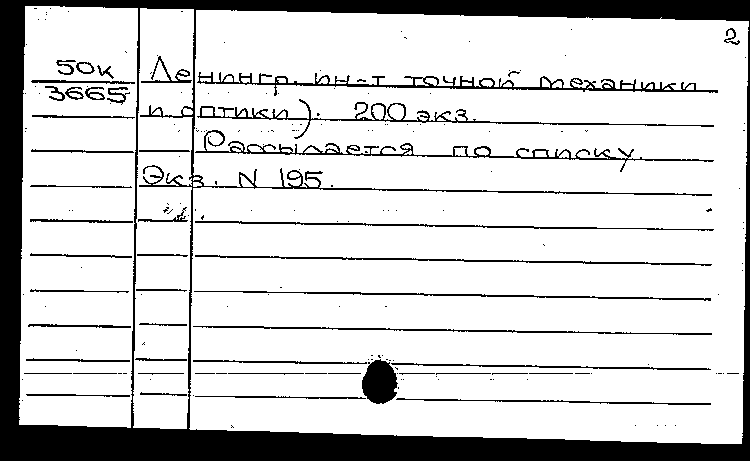 2
50к
3665
Ленингр. ин-т точной механики
и оптики). 200 экз.
Рассылается по списку.
Экз. N 195.